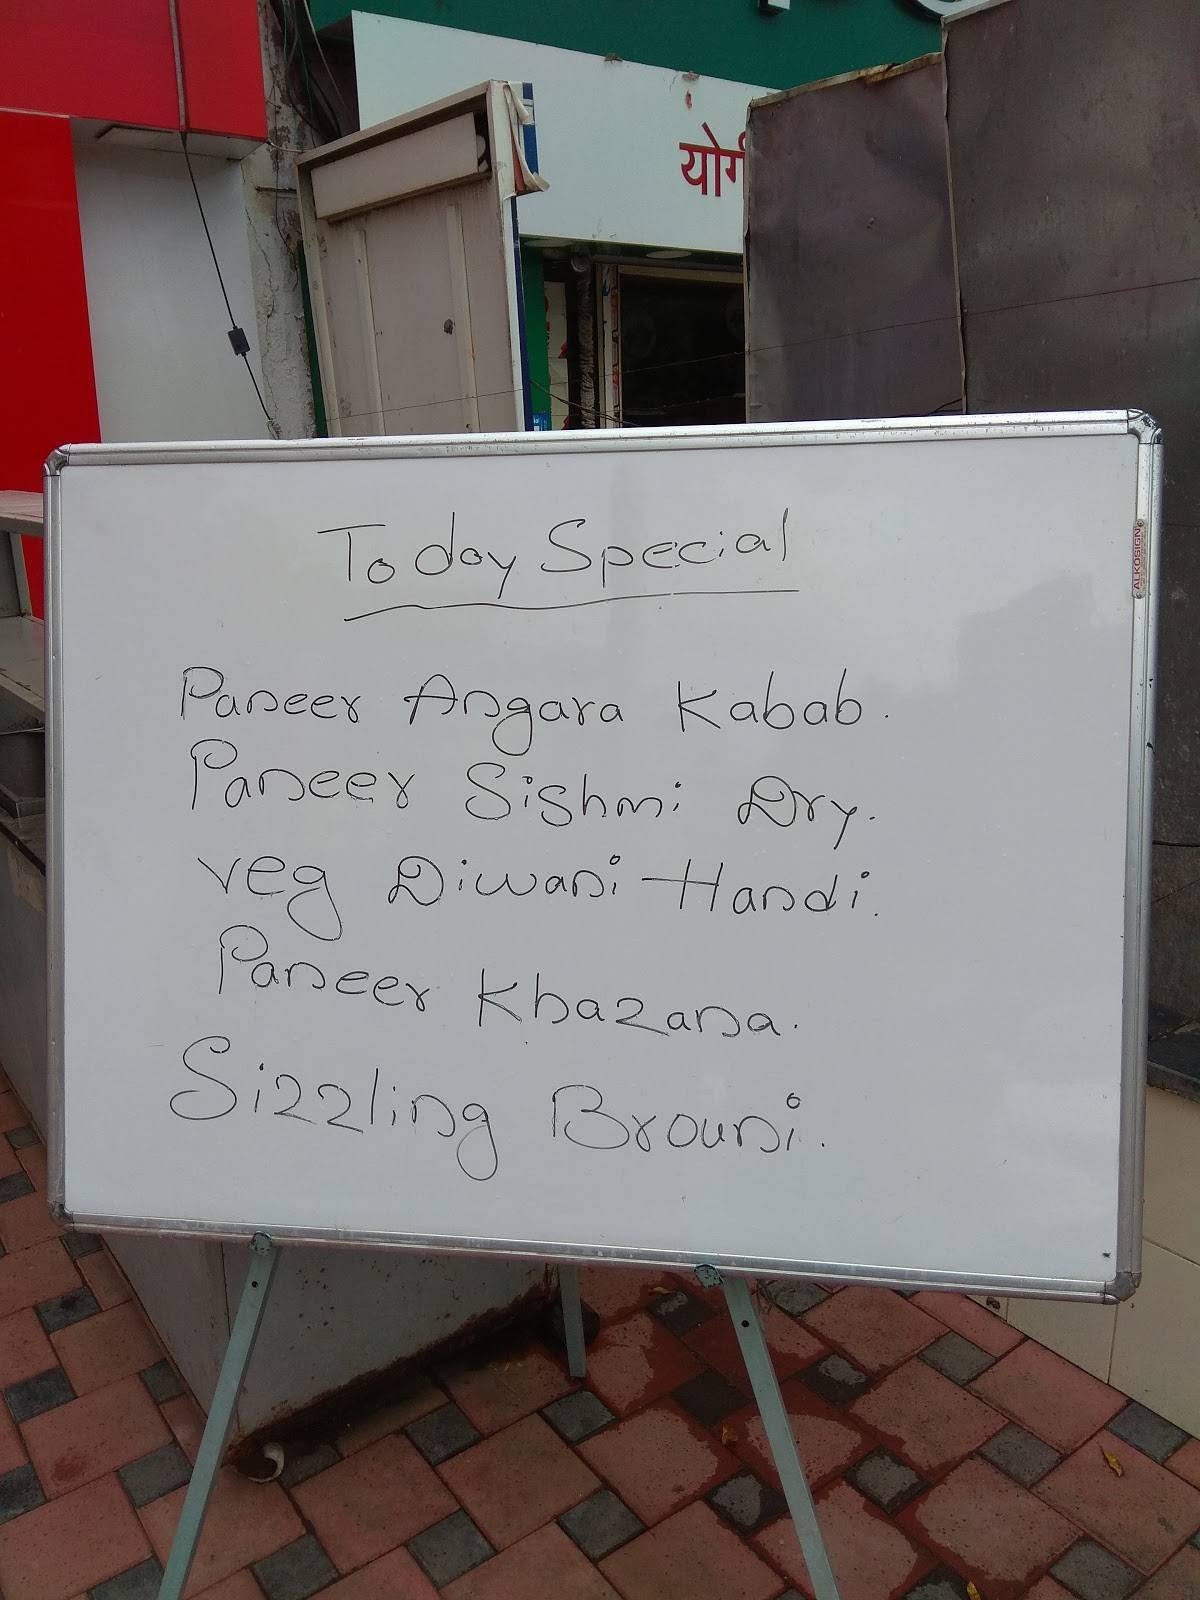 योगी
ALKOSIGN
Today Special
Paneer Angara Kabab.
Paneer Sishmi Dry.
veg Diwani Handi.
Paneer Khazana.
Sizzling Brouni.